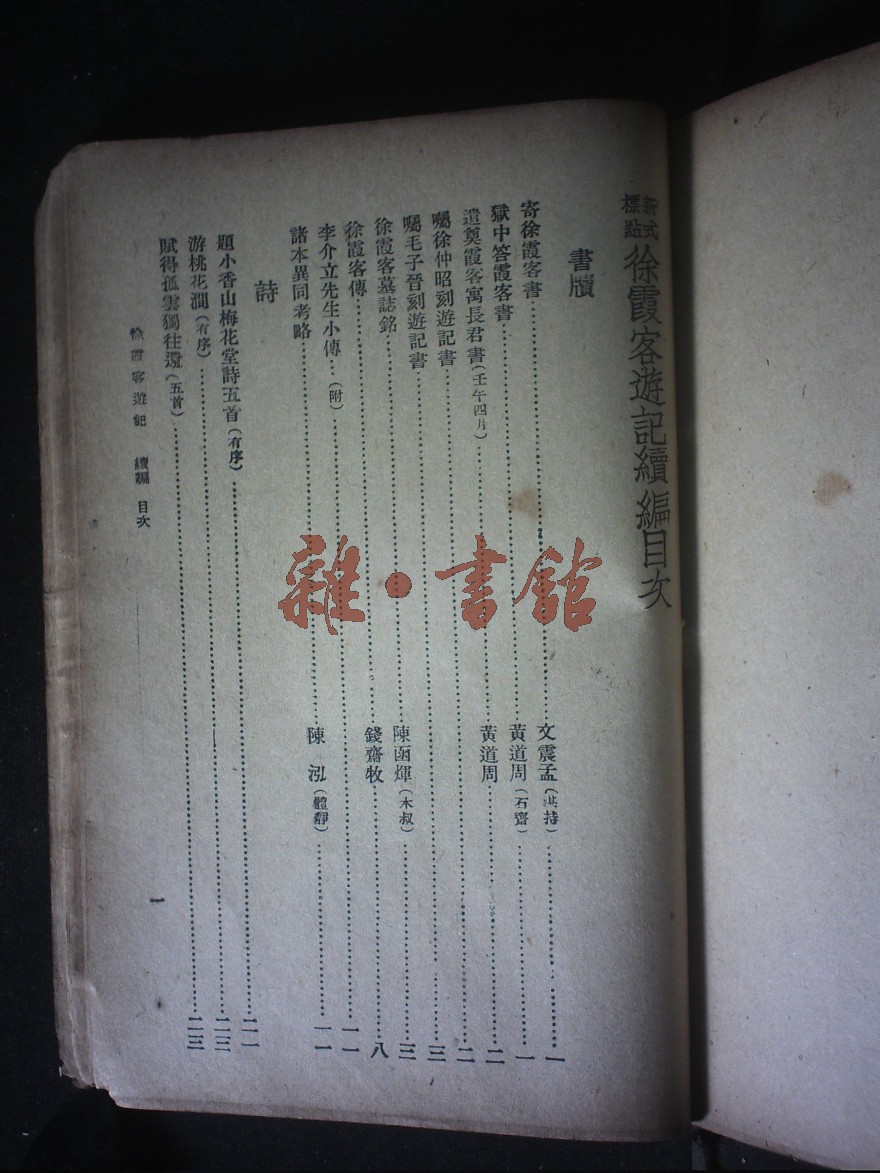 新式標點 徐霞客遊記續編目次
書牘
寄徐霞客書……文震孟(湛持)……一
獄中答霞客書……黃道周(石齋)……一
遺奠霞客寓長君書(壬午四月)……黃道周……二
囑徐仲昭刻遊記書……二
囑毛子晉刻遊記書……三
徐霞客墓誌銘……陳函煇(木叔)……三
徐霞客傳……錢齋牧……八
李介立先生小傳…(附)……一一
諸本異同考略……陳泓(體靜)……一一
詩
題小香山梅花堂詩五首(有序)……二一
游桃花澗(有序)……二三
賦得孤雲獨往還(五首)……二三
徐霞客遊記 續編 目次
一
雜·書館